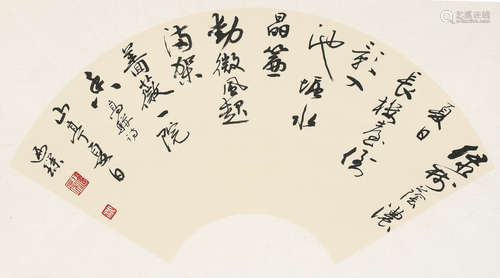 綠樹蔭濃
夏日
長樓臺倒
影入
池塘水
晶簾
動微風起
滿架
薔薇一院
香 高駢詩
山亭夏日